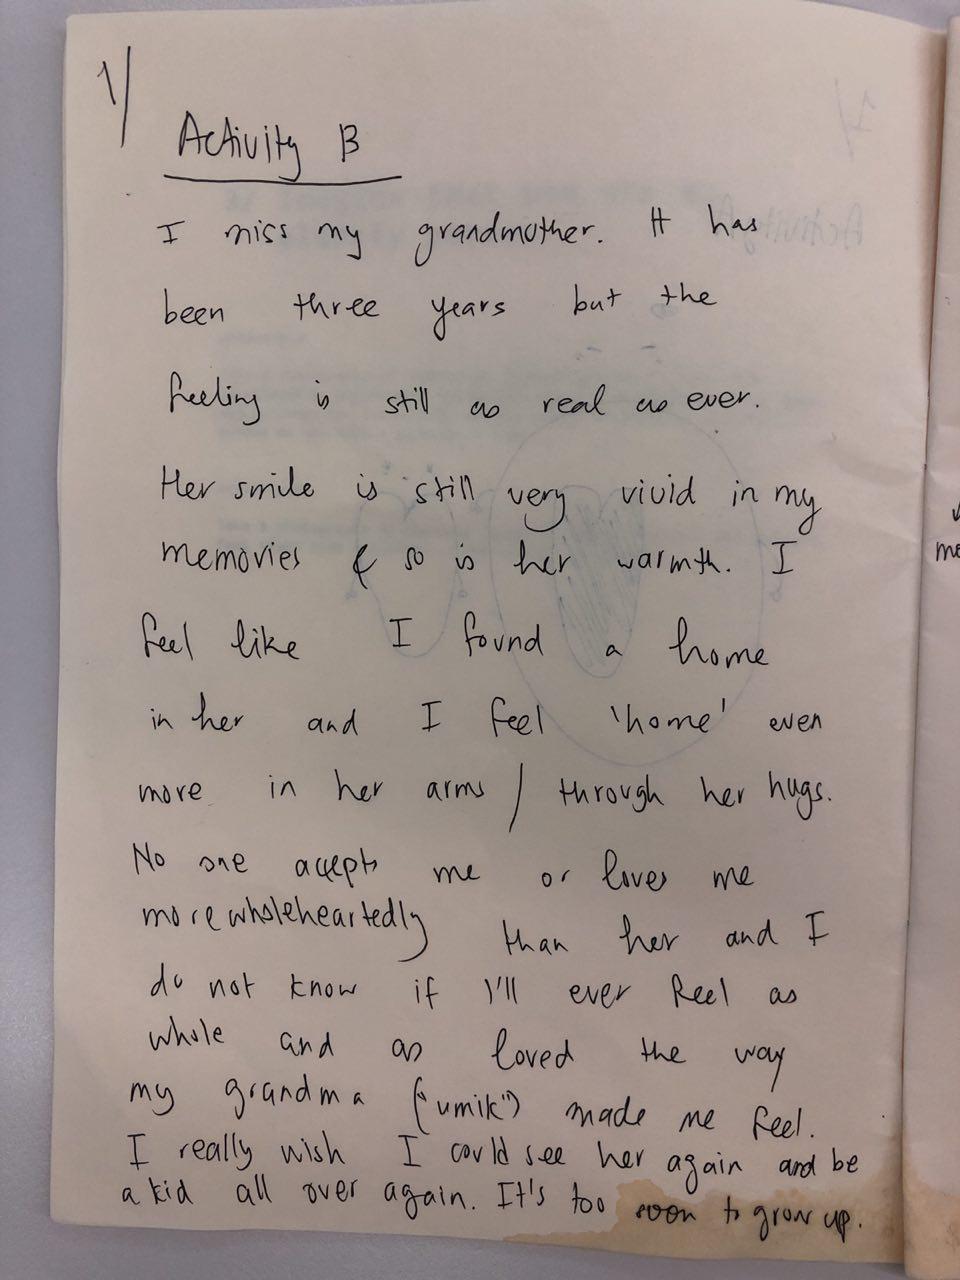 1/
Activity B
I miss my grandmother. It has
been three years but the
feeling is still as real as ever.
Her smile is still very vivid in my
memories & so is her warmth. I
feel like I found a home
in her and I feel 'home' even
more in her arms / through her hugs.
No one accepts me or loves me
more wholeheartedly than her and I
do not know if I'll ever feel as
whole and as loved the way
my grandma ("umik") made me feel.
I really wish I could see her again and be
a kid all over again. It's too soon to grow up.